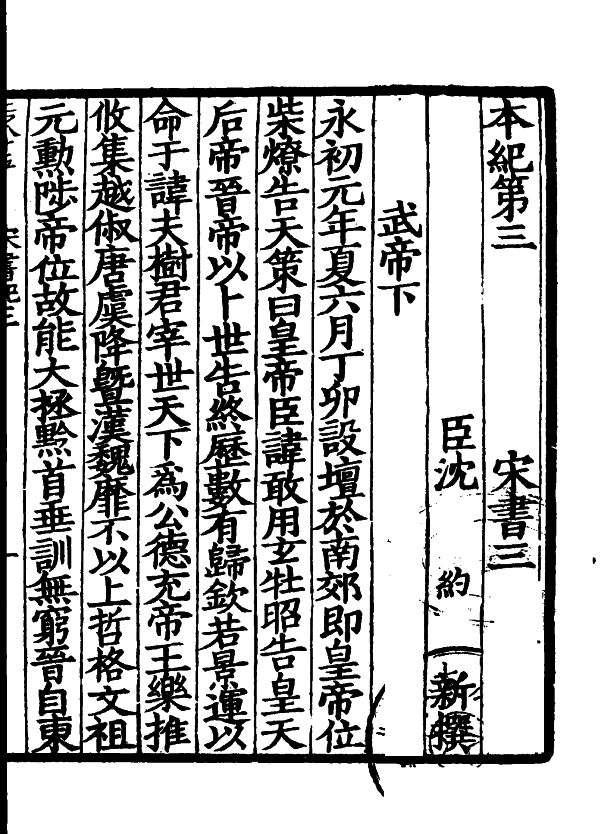 本紀第三 宋書三
臣沈 約 新撰
武帝下
永初元年夏六月丁卯設壇於南郊即皇帝位
柴燎告天策曰皇帝臣諱敢用玄牡昭告皇天
后帝晉帝以卜世告終歷數有歸欽若景運以
命于諱夫樹君宰世天下爲公德充帝王樂推
攸集越俶唐虞降曁漢魏靡不以上哲格文祖
元勲陟帝位故能大拯黔首垂訓無窮晉自東
宋書紀三 一